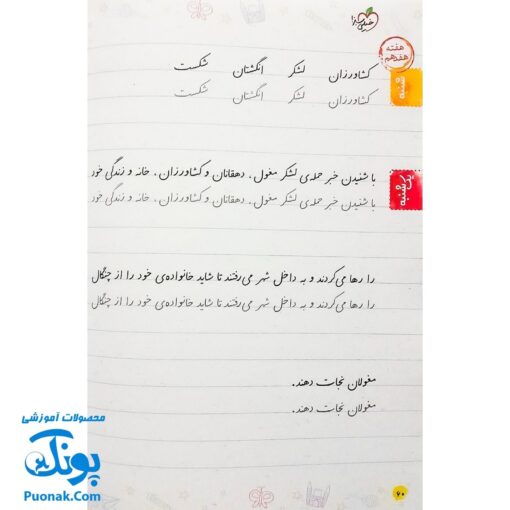 خیلی سبز
هفته
هفدهم
شنبه
کشاورزان لشکر انگشتان شکست
کشاورزان لشکر انگشتان شکست
یک‌شنبه
با شنیدن خبر حمله‌ی لشکر مغول، دهقانان و کشاورزان، خانه و زندگی خود
با شنیدن خبر حمله‌ی لشکر مغول، دهقانان و کشاورزان، خانه و زندگی خود
را رها می‌کردند و به داخل شهر می‌رفتند تا شاید خانواده‌ی خود را از چنگال
را رها می‌کردند و به داخل شهر می‌رفتند تا شاید خانواده‌ی خود را از چنگال
مغولان نجات دهند.
مغولان نجات دهند.
محصولات آموزشی
پونک
Puonak.Com
۶۰